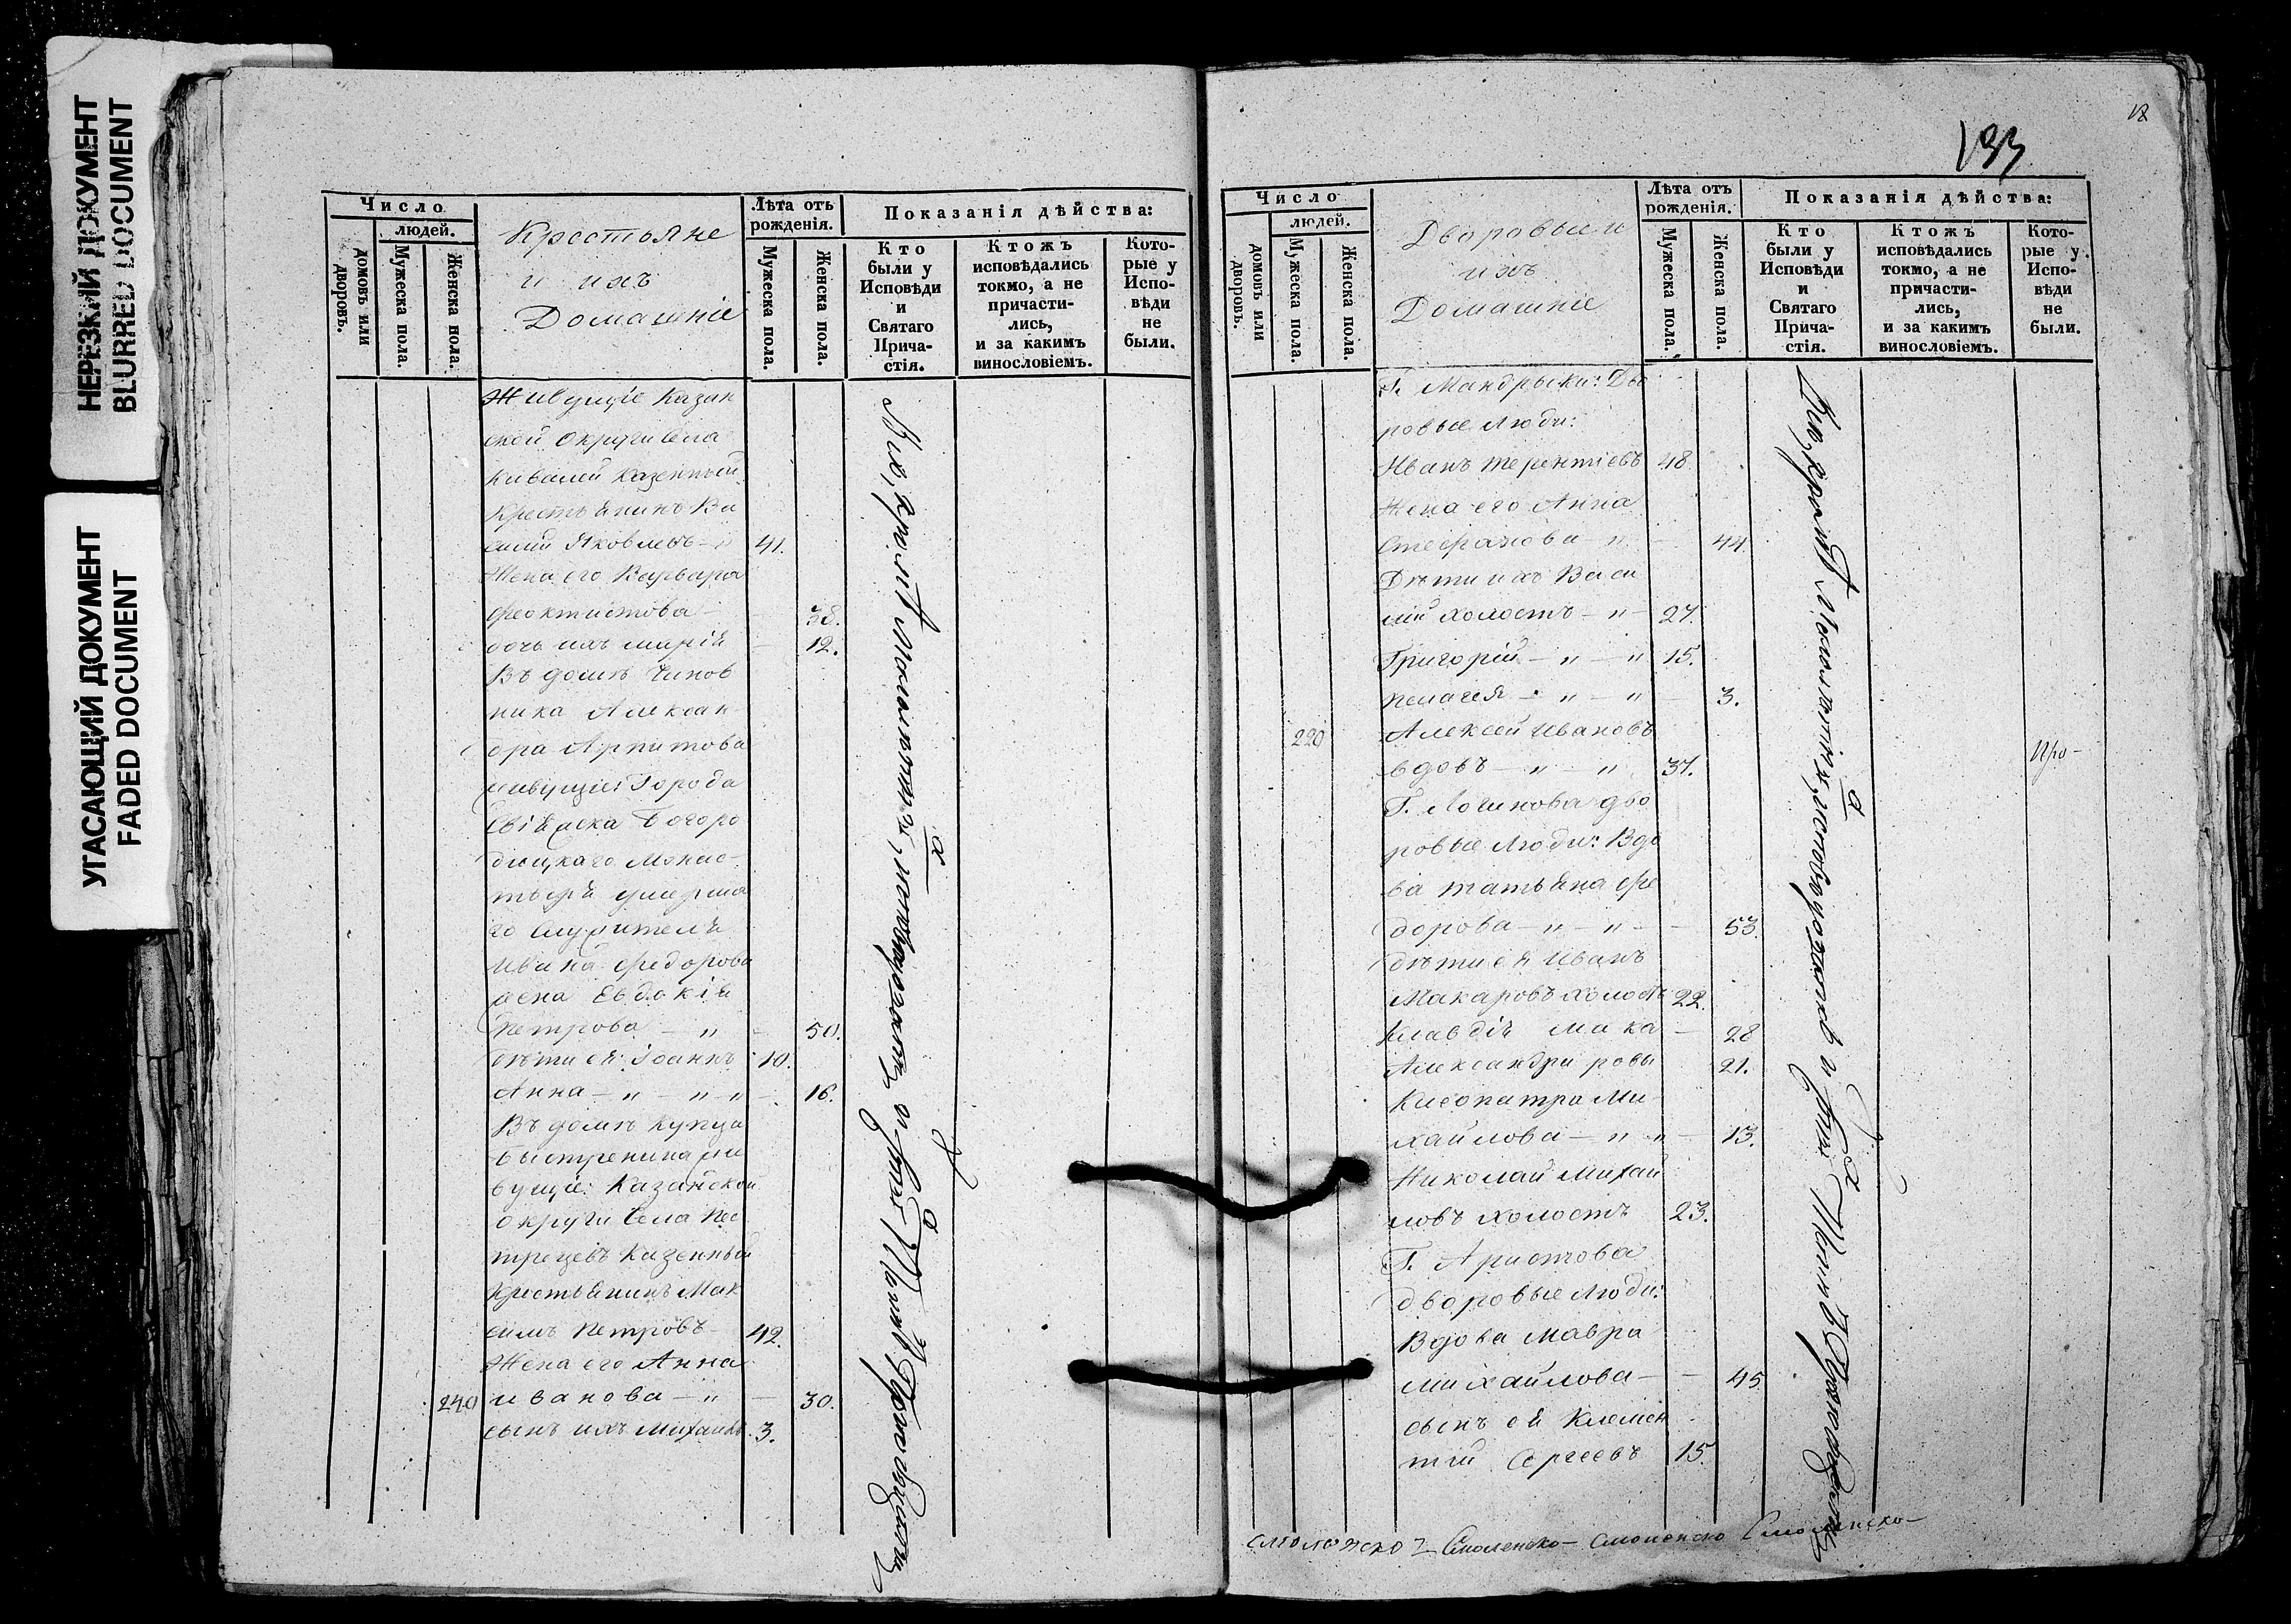 НЕРЕЗКИЙ ДОКУМЕНТ
BLURRED DOCUMENT
УГАСАЮЩИЙ ДОКУМЕНТ
FADED DOCUMENT
Число
людей.
домовъ или дворовъ.
Мужеска пола.
Женска пола.
Крестьяне
и ихъ
Домашніе
Лѣта отъ рожденія.
Мужеска пола.
Женска пола.
Показанія дѣйства:
Кто были у Исповѣди и Святаго Прича-стія.
Ктожъ исповѣдались токмо, а не причасти-лись, и за какимъ винословіемъ.
Кото-рые у Испо-вѣди не были.
Живущіе Казан
ской округи села
казенный
Крестьянинъ Ва
силий Яковлевъ - " 41.
Жена его Варвара
Феоктистова - 38.
дочь ихъ Марія - 12.
Въ домѣ Чинов
ника Алексан
дра
живущіе: Города
Свіяжска Богоро
дицкаго Монас
тыря умерша
го служителя
Ивана Федорова
жена Евдокія
Петрова - " - 50.
дѣти ея: Іоаннъ 10.
Анна - " - " - " - 16.
Въ домѣ купца
Быстренина жи
вущіе: Казанской
округи села Пес
трецовъ Казенный
Крестьянинъ Мак
симъ Петровъ - 42.
Жена его Анна
240 Иванова - " - 30.
сынъ ихъ Михаилъ 3.
193
12
Число
людей.
домовъ или дворовъ.
Мужеска пола.
Женска пола.
Дворовые и
ихъ
Домашніе
Лѣта отъ рожденія.
Мужеска пола.
Женска пола.
Показанія дѣйства:
Кто были у Исповѣди и Святаго Прича-стія.
Ктожъ исповѣдались токмо, а не причасти-лись, и за какимъ винословіемъ.
Кото-рые у Испо-вѣди не были.
Г. Мандрыки: Дво
ровые люди:
Иванъ Терентіевъ 48.
Жена его Анна
Стефанова - " - 44.
Дѣти ихъ Васи
лій холостъ - " - 27.
Григорій - " - " 15.
Пелагея - " - " - 3.
220 Алексей Ивановъ
вдовъ - " - " 37.
Г. Логинова дво
ровые люди: Вдо
ва Татьяна Фе
дорова - " - " - 53.
дѣти ея Иванъ
Макаровъ холостъ 22.
Клавдія Мака - 28
Александра ровы 21.
Клеопатра Ми
хайлова - " - " - 13.
Николай Михай
ловъ холостъ 23.
Г. Аристова
дворовые люди:
Вдова Мавра
Михайлова - 45
сынъ ея Клемен
тій Сергеевъ 15.
Смоленско - Смоленско Смоленско -